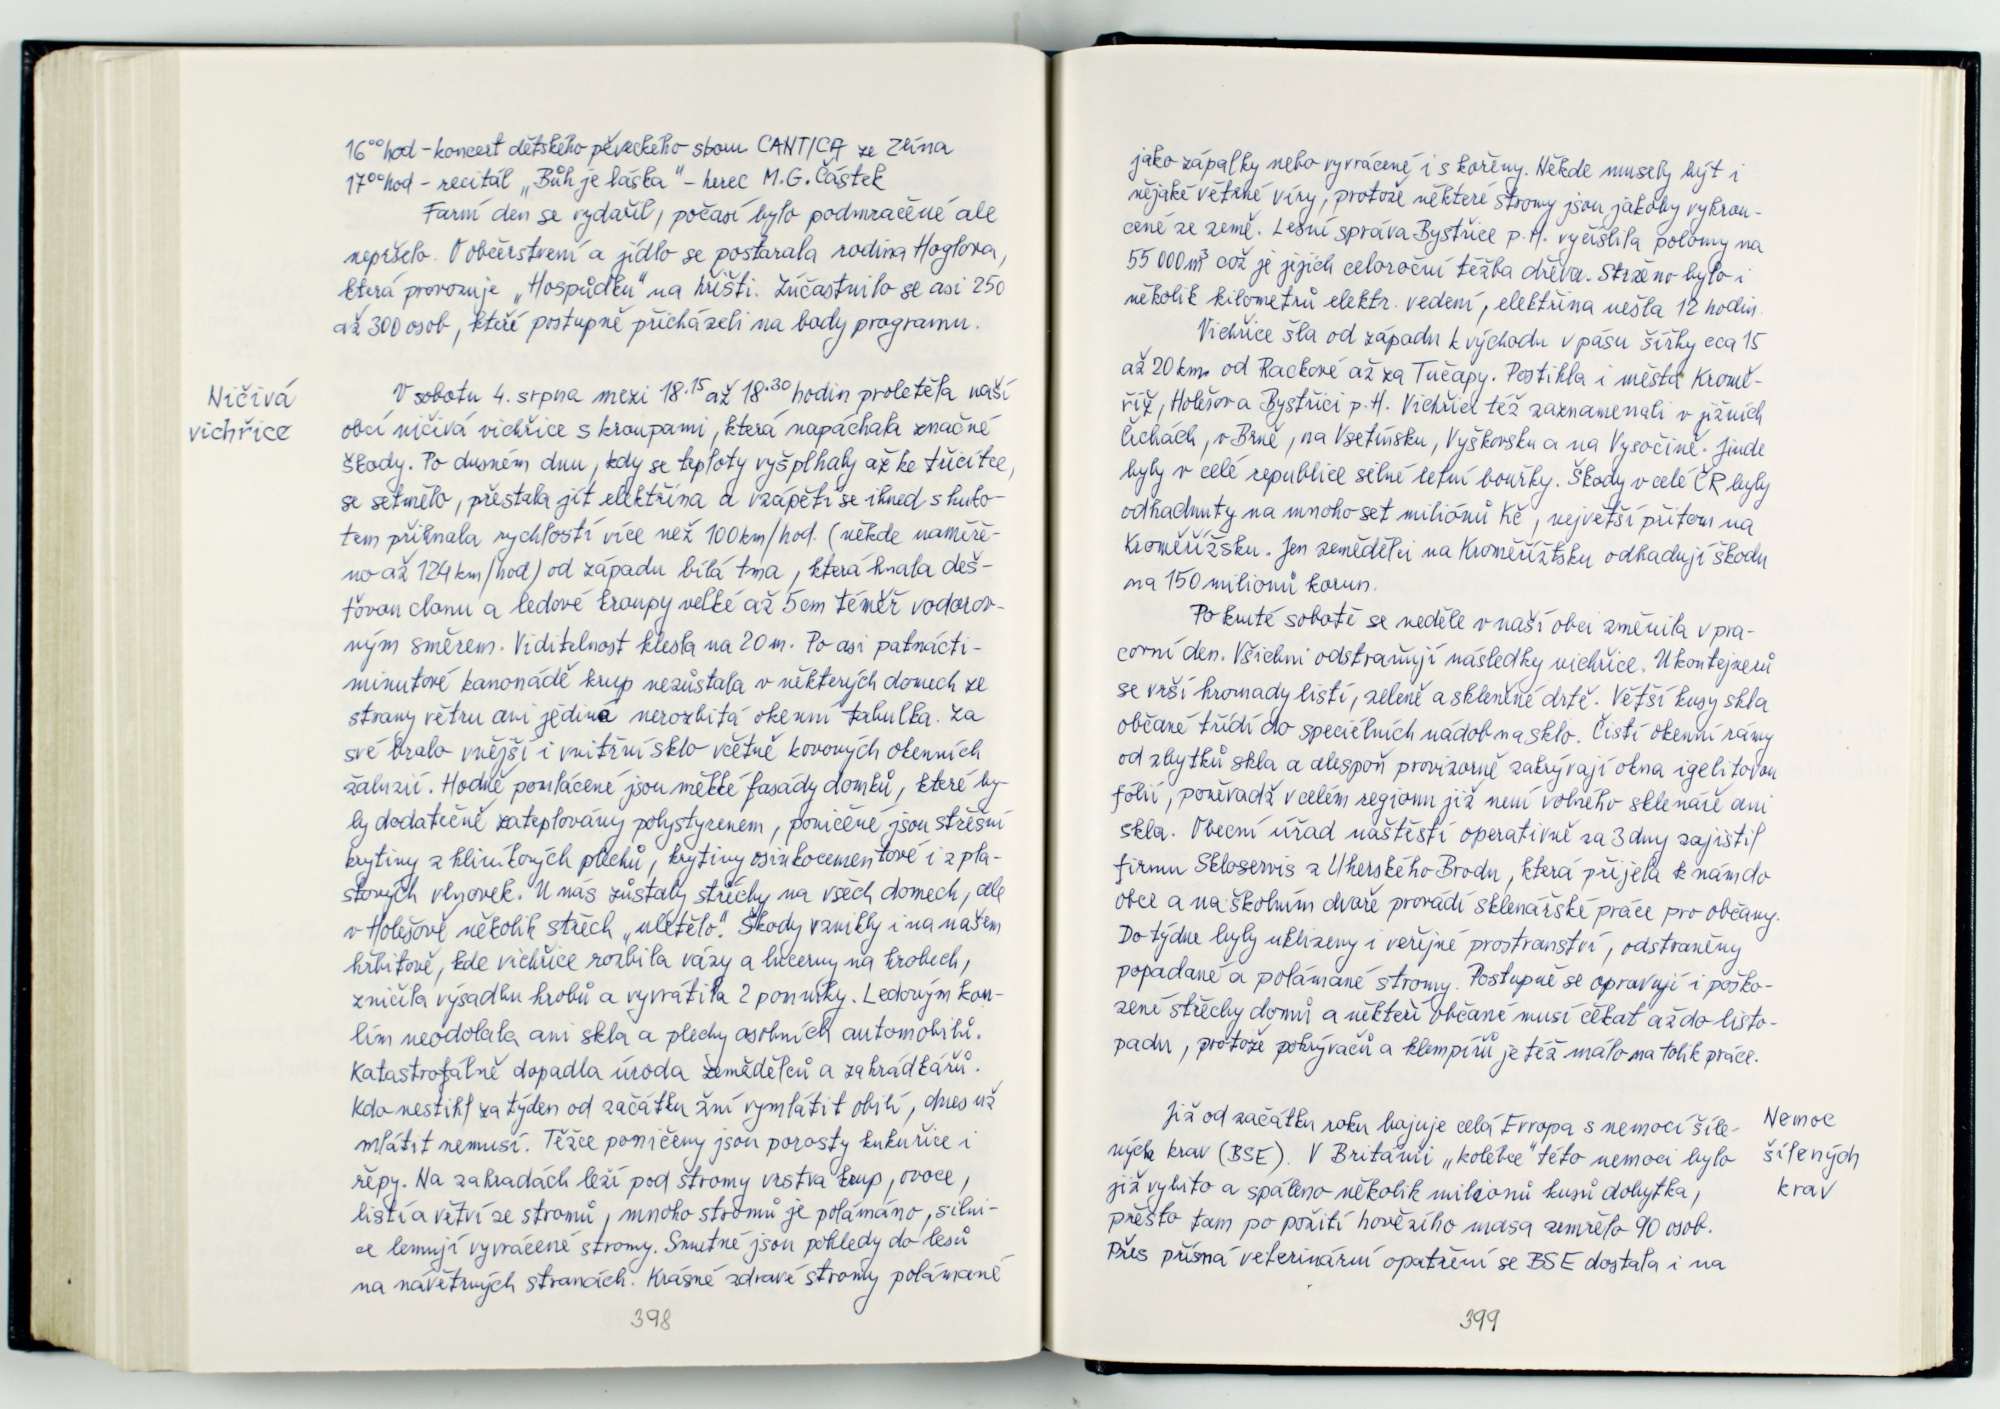 16⁰⁰hod – koncert dětského pěveckého sboru CANTICA ze Zlína
17⁰⁰hod – recitál „Bůh je láska" – herec M.G. Částek
Farní den se vydařil, počasí bylo podmračené ale
nepršelo. O občerstvení a jídlo se postarala rodina Hoglova,
která provozuje „Hospůdku" na hřišti. Zúčastnilo se asi 250
až 300 osob, kteří postupně přicházeli na body programu.
Ničivá
vichřice
V sobotu 4. srpna mezi 18.¹⁵ až 18.³⁰ hodin proletěla naší
obcí ničivá vichřice s kroupami, která napáchala značné
škody. Po dusném dnu, kdy se teploty vyšplhaly až ke třicítce,
se setmělo, přestala jít elektřina a vzápětí se ihned s huko-
tem přihnala rychlostí více než 100 km/hod. (někde naměře-
no až 124 km/hod) od západu bílá tma, která hnala deš-
ťovou clonu a ledové kroupy velké až 5 cm téměř vodorov-
ným směrem. Viditelnost klesla na 20 m. Po asi patnácti-
minutové kanonádě krup nezůstala v některých domech ze
strany větru ani jediná nerozbitá okenní tabulka. Za
své bralo vnější i vnitřní sklo včetně kovových okenních
žaluzií. Hodně pomlácené jsou měkké fasády domků, které by-
ly dodatečně zateplovány polystyrenem, poničené jsou střešní
krytiny z hliníkových plechů, krytiny osinkocementové i z pla-
stových vlnovek. U nás zůstaly střechy na všech domech, ale
v Holešově několik střech „uletělo". Škody vznikly i na našem
hřbitově, kde vichřice rozbila vázy a lucerny na hrobech,
zničila výsadbu hrobů a vyvrátila 2 pomníky. Ledovým kou-
lím neodolala ani skla a plechy osobních automobilů.
Katastrofálně dopadla úroda zemědělců a zahrádkářů.
Kdo nestihl za týden od začátku žní vymlátit obilí, dnes už
mlátit nemusí. Těžce poničeny jsou porosty kukuřice i
řepy. Na zahradách leží pod stromy vrstva krup, ovoce,
listí a větví ze stromů, mnoho stromů je polámáno, silni-
ce lemují vyvrácené stromy. Smutné jsou pohledy do lesů
na návětrných stranách. Krásné zdravé stromy polámané
398
jako zápalky nebo vyvrácené i s kořeny. Někde musely být i
nějaké větrné víry, protože některé stromy jsou jakoby vykrou-
cené ze země. Lesní správa Bystřice p.H. vyčíslila polomy na
55 000 m³ což je jejich celoroční těžba dřeva. Strženo bylo i
několik kilometrů elektr. vedení, elektřina nešla 12 hodin.
Vichřice šla od západu k východu v pásu šířky cca 15
až 20 km od Rackové až za Tučapy. Postihla i města Kromě-
říž, Holešov a Bystřici p.H. Vichřici též zaznamenali v jižních
Čechách, v Brně, na Vsetínsku, Vyškovsku a na Vysočině. Jinde
byly v celé republice silné letní bouřky. Škody v celé ČR byly
odhadnuty na mnoho set miliónů Kč, největší přitom na
Kroměřížsku. Jen zemědělci na Kroměřížsku odhadují škodu
na 150 milionů korun.
Po kruté sobotě se neděle v naší obci změnila v pra-
covní den. Všichni odstraňují následky vichřice. U kontejnerů
se vrší hromady listí, zeleně a skleněné drtě. Větší kusy skla
občané třídí do speciálních nádob na sklo. Čistí okenní rámy
od zbytků skla a alespoň provizorně zakrývají okna igelitovou
fólií, poněvadž v celém regionu již není volného sklenáře ani
skla. Obecní úřad naštěstí operativně za 3 dny zajistil
firmu Skloservis z Uherského Brodu, která přijela k nám do
obce a na školním dvoře provádí sklenářské práce pro občany.
Do týdne byly uklizeny i veřejné prostranství, odstraněny
popadané a polámané stromy. Postupně se opravují i poško-
zené střechy domů a někteří občané musí čekat až do listo-
padu, protože pokrývačů a klempířů je též málo na tolik práce.
Již od začátku roku bojuje celá Evropa s nemocí šíle-
ných krav (BSE). V Británii „kolébce" této nemoci bylo
již vybito a spáleno několik milionů kusů dobytka,
přesto tam po požití hovězího masa zemřelo 90 osob.
Přes přísná veterinární opatření se BSE dostala i na
Nemoc
šílených
krav
399